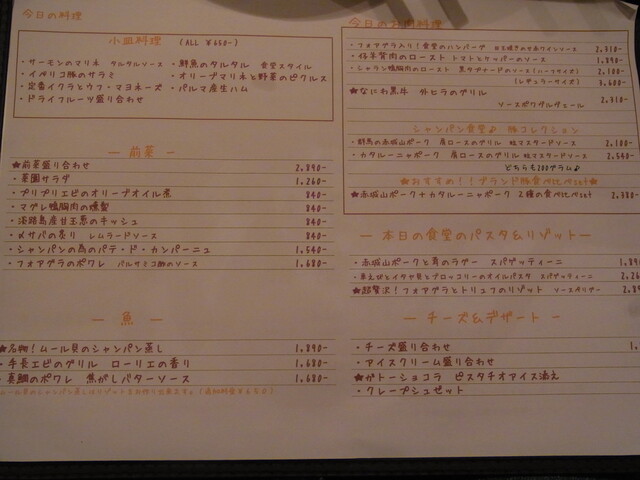 今日の料理
小皿料理 (ALL ￥650-)
・サーモンのマリネ タルタルソース
・イベリコ豚のサラミ
・定番イクラとウフ・マヨネーズ
・ドライフルーツ盛り合わせ
・鮮魚のタルタル 食堂スタイル
・オリーブマリネと野菜のピクルス
・パルマ産生ハム
― 前菜 ―
★前菜盛り合わせ 2,890-
・菜園サラダ 1,260-
・プリプリエビのオリーブオイル煮 840-
・マグレ鴨胸肉の燻製 840-
・淡路島産甘玉葱のキッシュ 840-
・〆サバの炙り レムラードソース 840-
・シャンパンの為のパテ・ド・カンパーニュ 1,540-
・フォアグラのポワレ バルサミコ酢のソース 1,680-
― 魚 ―
★名物！ムール貝のシャンパン蒸し 1,890-
・手長エビのグリル ローリエの香り 1,680-
・真鯛のポワレ 焦がしバターソース 1,680-
今日のお肉料理
・フォアグラ入り！食堂のハンバーグ 2,310-
・仔羊背肉のロースト トマトとケッパーのソース 1,890-
・シャラン鴨胸肉のロースト 黒タプナードのソース (ハーフサイズ) 2,100-
(レギュラーサイズ) 3,600-
★なにわ黒牛 外ヒラのグリル
ソースボルデュレーズ 2,310-
シャンパン食堂♪ 豚コレクション
・群馬の赤城山ポーク 肩ロースのグリル 粒マスタードソース 2,100-
・カタルーニャポーク 肩ロースのグリル 粒マスタードソース 2,540-
どちらも200グラム♪
★おすすめ！！ブランド豚食べ比べset★
★赤城山ポーク+カタルーニャポーク 2種の食べ比べset 2,380-
― 本日の食堂のパスタ&リゾット ―
・赤城山ポークと茸のラグー スパゲッティーニ
・車えびとイタヤ貝とブロッコリーのオイルパスタ スパゲッティーニ
★超贅沢！フォアグラとトリュフのリゾット
― チーズ&デザート ―
・チーズ盛り合わせ
・アイスクリーム盛り合わせ
★ガトーショコラ ピスタチオアイス添え
・クレープシュゼット